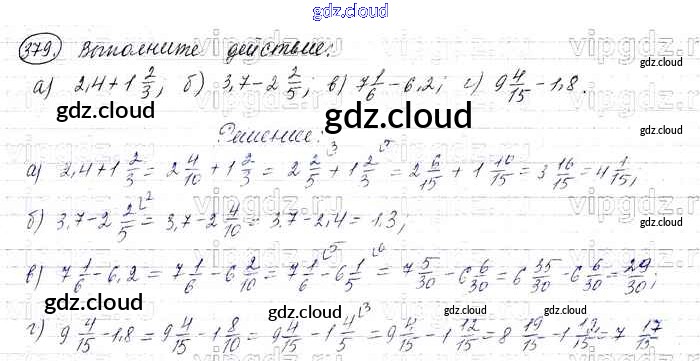 gdz.cloud
379. Выполните действие:
а) 2,4+1 2/3; б) 3,7-2 2/5; в) 7 1/6-6,2; г) 9 4/15-1,8.
gdz.cloud gdz.cloud gdz.cloud
Решение:
а) 2,4+1 2/3 = 2 4/10+1 2/3 = 2 2/5+1 2/3 = 2 6/15+1 10/15 = 3 16/15 = 4 1/15;
б) 3,7-2 2/5 = 3,7-2 4/10 = 3,7-2,4 = 1,3;
в) 7 1/6-6,2 = 7 1/6-6 2/10 = 7 1/6-6 1/5 = 7 5/30-6 6/30 = 6 35/30-6 6/30 = 29/30;
gdz.cloud gdz.cloud
г) 9 4/15-1,8 = 9 4/15-1 8/10 = 9 4/15-1 4/5 = 9 4/15-1 12/15 = 8 19/15-1 12/15 = 7 17/15